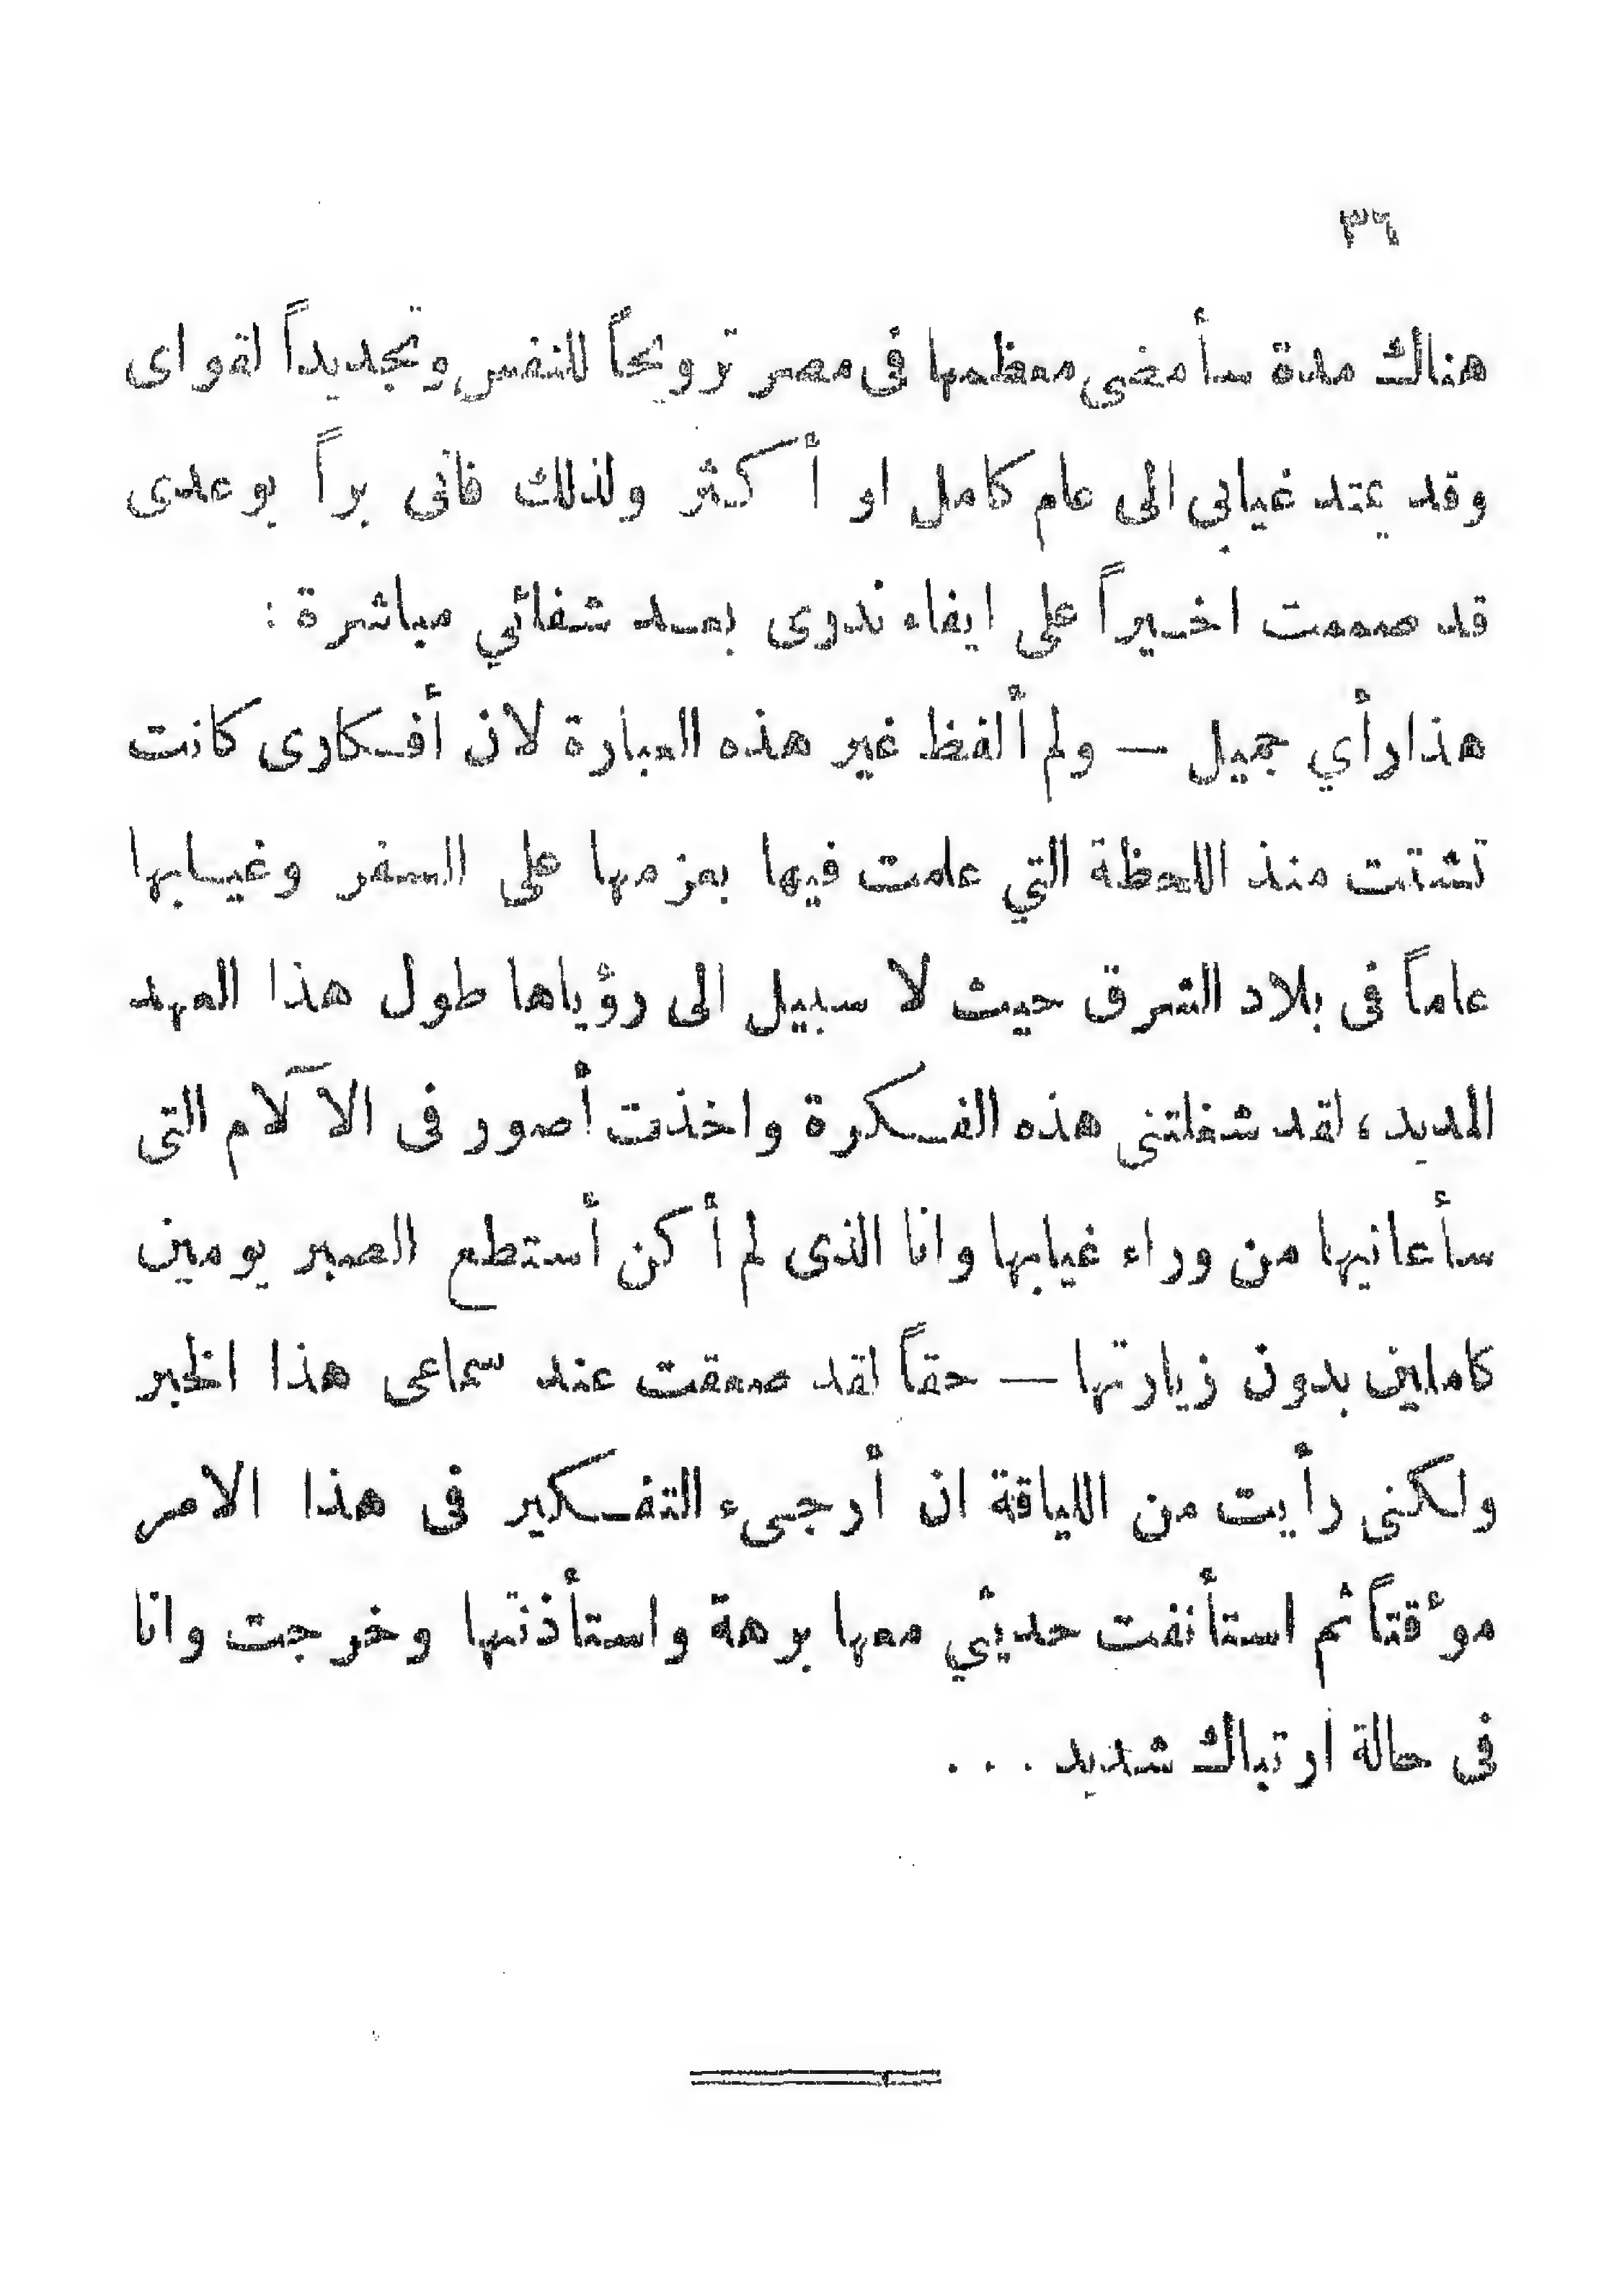 ٣٦
هناك مدة سأمضى معظمها فى مصر ترويحاً للنفس وتجديداً لقواى
وقد يمتد غيابي الى عام كامل او أكثر ولذلك فانى براً بوعدى
قد صممت اخيراً على ايفاء ندوى بعد شفائي مباشرة :
هذا رأي جميل — ولم ألفظ غير هذه العبارة لان أفكارى كانت
تشتتت منذ اللحظة التي علمت فيها بعزمها على السفر وغيابها
عاماً فى بلاد الشرق حيث لا سبيل الى رؤياها طول هذا العهد
المديد ، لقد شغلتنى هذه الفكرة واخذت أصور فى الآلام التى
سأعانيها من وراء غيابها وانا الذى لم أكن أستطع الصبر يومين
كاملين بدون زيارتها — حقاً لقد صعقت عند سماعى هذا الخبر
ولكنى رأيت من اللياقة ان أرجىء التفكير فى هذا الامر
مؤقتاً ثم استأنفت حديثي معها برهة واستأذنتها وخرجت وانا
فى حالة ارتباك شديد . . .